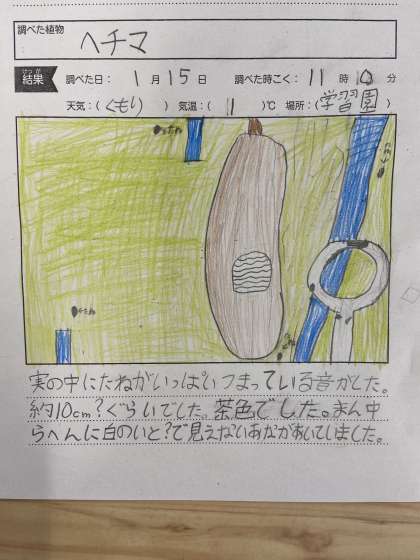 調べた植物
ヘチマ
けっか
結果 調べた日：1月15日 調べた時こく：11時0分
天気：(くもり) 気温：(1)℃ 場所：(学習園)
たね
実の中にたねがいっぱいつまっている音がした。
約10cm？ぐらいでした。茶色でした。まん中
らへんに白のいと？で見えないあながあいていました。